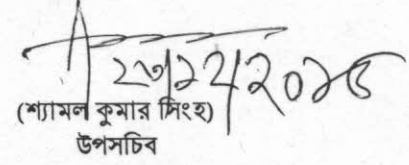 ২৩/১২/২০১৫
(শ্যামল কুমার সিংহ)
উপসচিব